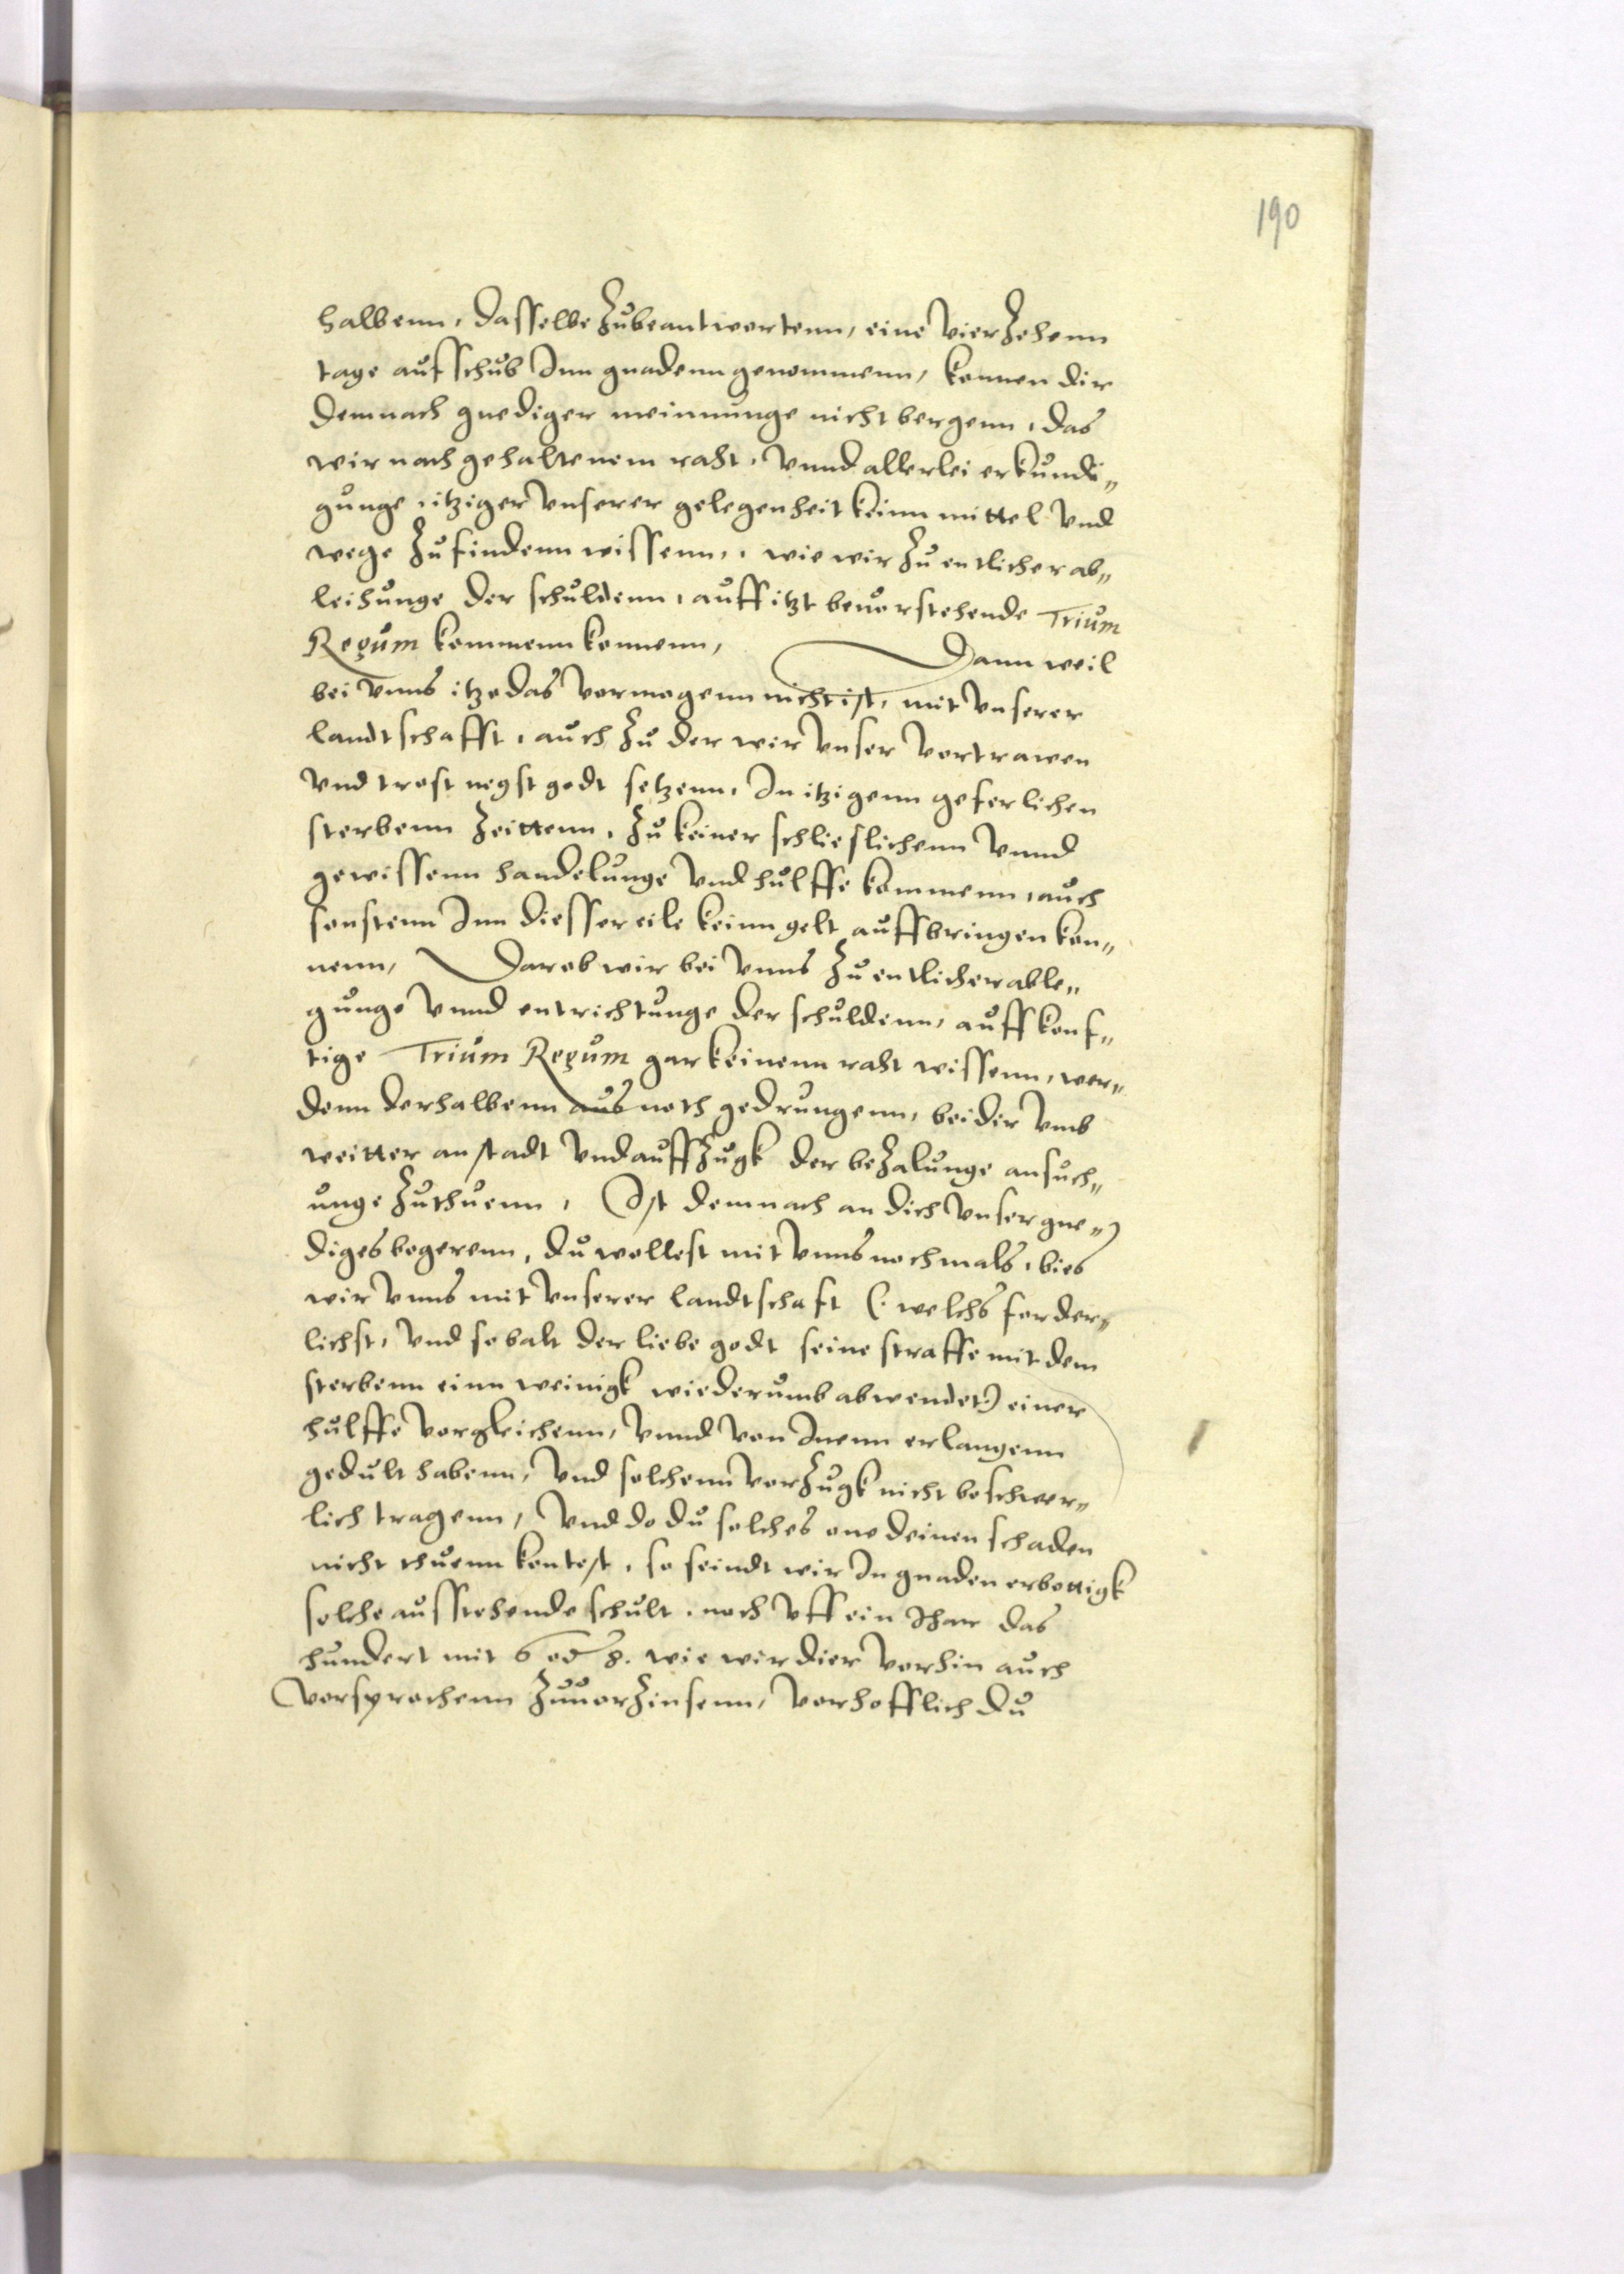 190
halbenn, dasselbe zubeantwortenn, eine vierzehenn
tage aufschub Inn gnadenn genommenn, konnen dir
demnach gnediger meinnunge nicht bergenn, das
wir nach gehaltenem raht, vnnd allerlei erkundi„
gunge, itziger vnserer gelegenheit keinn mittel vnd
wege zufindenn wissenn, wie wir zu entlicher ab„
leihunge der schuldenn, auff itzt beuorstehende Trium
Regum kommenn konnenn, Dann weil
bei vnns itzo das vormogenn nicht ist, mit vnserer
landtschafft, auch zu der wir vnser vortrawen
vnd trost negst godt setzenn, In itzigenn geferlichen
sterbenn zeittenn, zu keiner schlieslichenn vnnd
gewissenn handelunge vnd hulffe kommenn, auch
sonstenn Inn diesser eile keinn gelt auffbringen kon„
nenn, Darob wir bei vnns zu entlicher able„
gunge vnnd entrichtunge der schuldenn, auff konf„
tige Trium Regum gar keinenn raht wissenn, wer„
denn derhalbenn aus noth gedrungenn, bei dir vmb
weitter anstadt vnd auffzugk der bezalunge ansuch„
unge zuthuenn, Ist demnach an dich vnser gne„
diges begerenn, du wollest mit vnns nochmals, bies
wir vnns mit vnserer landtschaft (: welchs forder„
lichst, vnd sobalt der liebe godt seine straffe mit dem
sterbenn einn weinigk wiederumb abwendet:) einer
hulffe vorgleichenn, vnnd von Inenn erlangenn
gedult habenn, vnd solchenn vorzugk nicht beschwer„
lich tragenn, vnd do du solches one deinen schaden
nicht thuenn kontest, so seindt wir In gnaden erbottigk
solche ausstehende schult, noch vff ein Ihar das
hundert mit 6 wie wir dier vorhin auch
vorsprochenn zuuorzinsenn, vorhofflich du